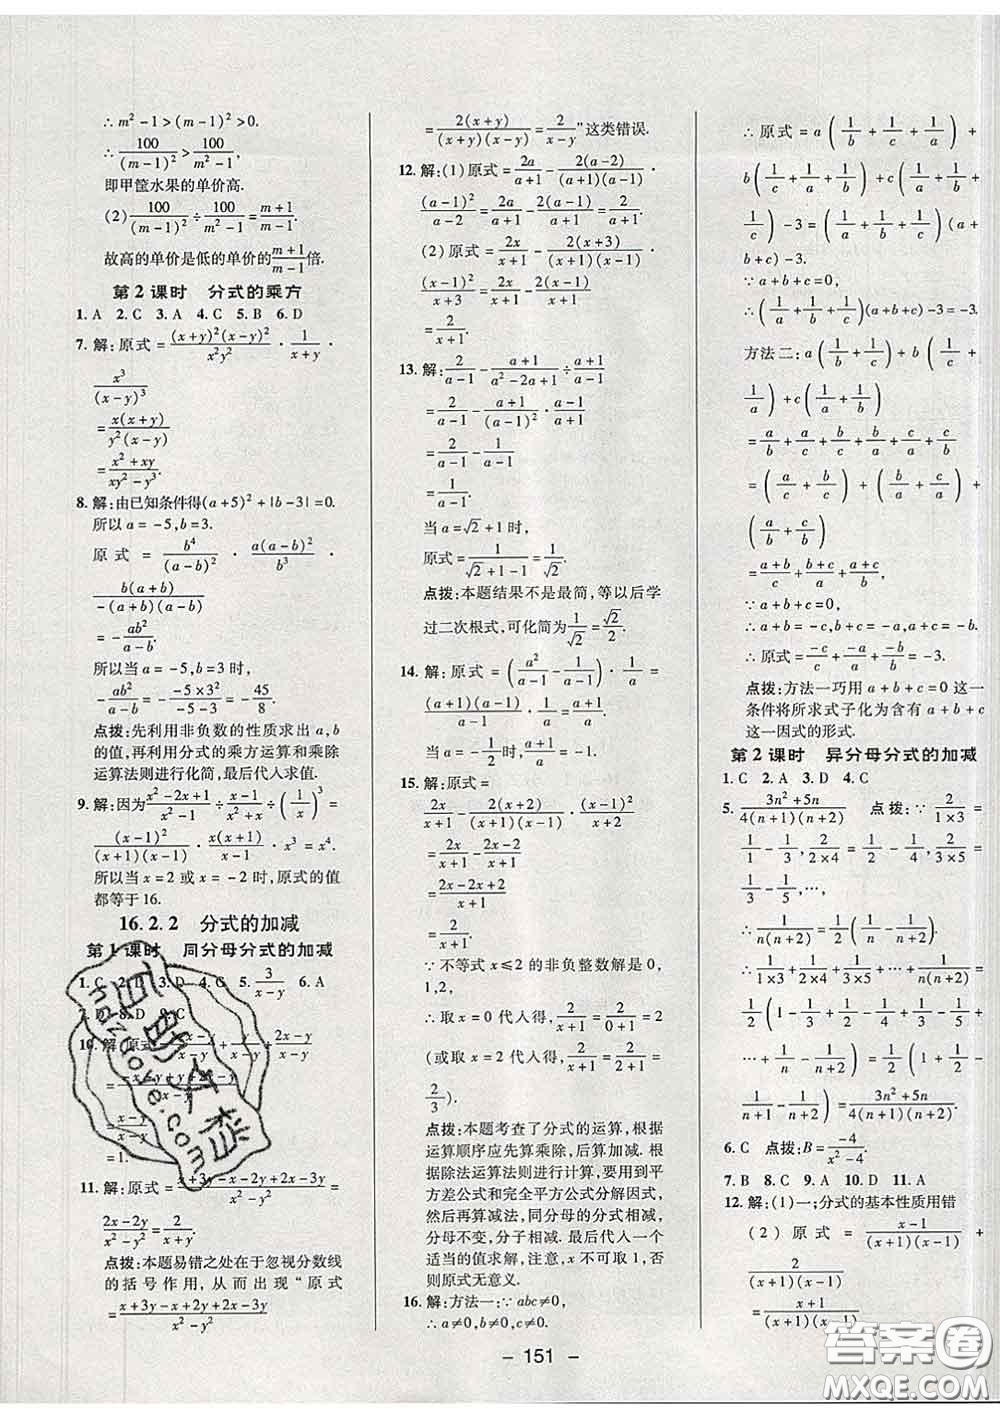 ∴ m²-1>(m-1)²>0.
∴ 100/(m-1)² > 100/(m²-1),
即甲筐水果的单价高.
(2) 100/(m-1)² ÷ 100/(m²-1) = (m+1)/(m-1).
故高的单价是低的单价的(m+1)/(m-1)倍.
第2课时 分式的乘方
1. A 2. C 3. A 4. C 5. B 6. D
7. 解:原式=(x+y)²(x-y)²/x²y² · 1/(x+y) ·
x³/(x-y)³
=x(x+y)/y²(x-y)
=(x²+xy)/(xy²-y³).
8. 解:由已知条件得(a+5)²+|b-3|=0.
所以a=-5,b=3.
原式=b⁴/(a-b)² · a(a-b)²/b³ ·
b(a+b)/-(a+b)(a-b)
=-ab²/(a-b).
所以当a=-5,b=3时,
-ab²/(a-b)=-(-5×3²)/(-5-3)=-45/8.
点拨:先利用非负数的性质求出a,b
的值,再利用分式的乘方运算和乘除
运算法则进行化简,最后代入求值.
9. 解:因为(x²-2x+1)/(x²-1)÷(x-1)/(x²+x)÷(1/x)³=
(x-1)²/(x+1)(x-1) · x(x+1)/(x-1) · x³=x⁴.
所以当x=2或x=-2时,原式的值
都等于16.
16.2.2 分式的加减
第1课时 同分母分式的加减
5. 3/(x-y) 6. A
=1.
11. 解:原式=(x+3y-x-2y+2x-3y)/(x²-y²)=
(2x-2y)/(x²-y²)=2/(x+y).
点拨:本题易错之处在于忽视分数线
的括号作用,从而出现“原式
=(x+3y-x+2y+2x-3y)/(x²-y²)
=2(x+y)/(x+y)(x-y)=2/(x-y)”这类错误.
12. 解:(1)原式=2a/(a+1)-2(a-2)/(a+1)(a-1) ·
(a-1)²/(a-2)=2a/(a+1)-2(a-1)/(a+1)=2/(a+1).
(2)原式=2x/(x+1)-2(x+3)/(x+1)(x-1) ·
(x-1)²/(x+3)=2x/(x+1)-2(x-1)/(x+1)
=2/(x+1).
13. 解:2/(a-1)-(a+1)/(a²-2a+1)÷(a+1)/(a-1)
=2/(a-1)-(a+1)/(a-1)² · (a-1)/(a+1)
=2/(a-1)-1/(a-1)
=1/(a-1).
当a=√2+1时,
原式=1/(√2+1-1)=1/√2.
点拨:本题结果不是最简,等以后学
过二次根式,可化简为1/√2=√2/2.
14. 解:原式=(a²/(a-1)-1/(a-1)) · 1/a=
(a+1)(a-1)/(a-1) · 1/a=(a+1)/a.
当a=-2时,原式=(-2+1)/-2=1/2.
15. 解:原式=
2x/(x+1)-2(x+2)/(x+1)(x-1) · (x-1)/(x+2)
=2x/(x+1)-2/(x+1)
=(2x-2x+2)/(x+1)
=2/(x+1).
∵不等式x≤2的非负整数解是0,
1,2,
∴取x=0代入得,2/(x+1)=2/(0+1)=2
(或取x=2代入得,2/(x+1)=2/(2+1)=
2/3).
点拨:本题考查了分式的运算,根据
运算顺序应先算乘除,后算加减.根
据除法运算法则进行计算,要用到平
方差公式和完全平方公式分解因式,
然后再算减法,同分母的分式相减,
分母不变,分子相减.最后代入一个
适当的值求解,注意,x不可取1,否
则原式无意义.
16. 解:方法一:∵abc≠0,
∴a≠0,b≠0,c≠0.
∴原式=a(1/b+1/c+1/a)+
b(1/a+1/c+1/b)+c(1/a+1/b+
1/c)-3=(1/a+1/b+1/c)(a+
b+c)-3.
∵a+b+c=0,
∴(1/a+1/b+1/c)(a+b+c)-3=-3.
方法二:a(1/b+1/c)+b(1/a+
1/c)+c(1/a+1/b)
=a/b+a/c+b/a+b/c+c/a+c/b
=(a/c+b/c)+(b/a+c/a)+
(a/b+c/b)
=(a+b)/c+(b+c)/a+(a+c)/b.
∵a+b+c=0,
∴a+b=-c,b+c=-a,a+c=-b.
∴原式=-c/c+-a/a+-b/b=-3.
点拨:方法一巧用a+b+c=0这一
条件将所求式子化为含有a+b+c
这一因式的形式.
第2课时 异分母分式的加减
1. C 2. A 3. D 4. C
5. (3n²+5n)/4(n+1)(n+2) 点拨:∵2/(1×3)=
1/1-1/3,2/(2×4)=1/2-1/4,2/(3×5)=
1/3-1/5,…,
∴2/n(n+2)=1/n-1/(n+2),
∴1/(1×3)+1/(2×4)+1/(3×5)+…+1/n(n+2)=
1/2(1-1/3+1/2-1/4+1/3-1/5+
…+1/n-1/(n+2))=1/2(1+1/2-
1/(n+1)-1/(n+2))=(3n²+5n)/4(n+1)(n+2).
6. C 点拨:B=-4/(x²-4).
7. B 8. C 9. A 10. D 11. A
12. 解:(1)一;分式的基本性质用错
(2)原式=(x-1)/(x+1)(x-1)+
2/(x+1)(x-1)
=(x+1)/(x+1)(x-1)
- 151 -
答案圈
MXQE.COM